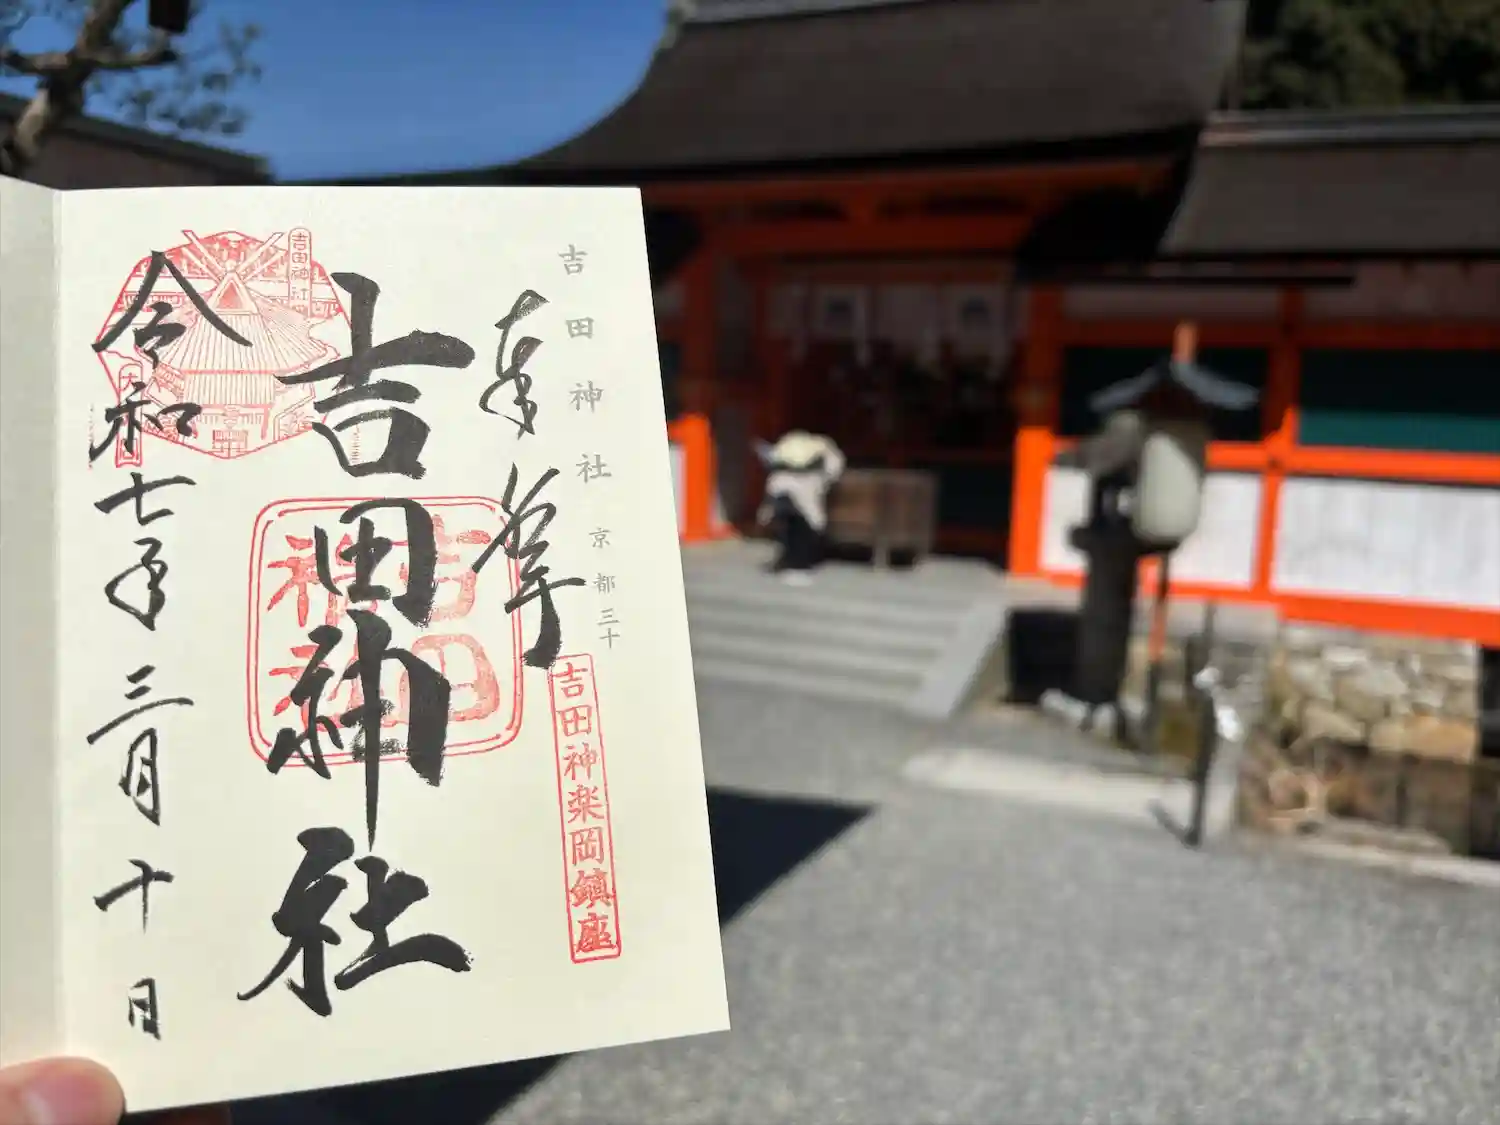 吉田神社 京都三十
奉拝
吉田神楽岡鎮座
吉田神社
吉田神社
令和七年三月十日
吉田神社